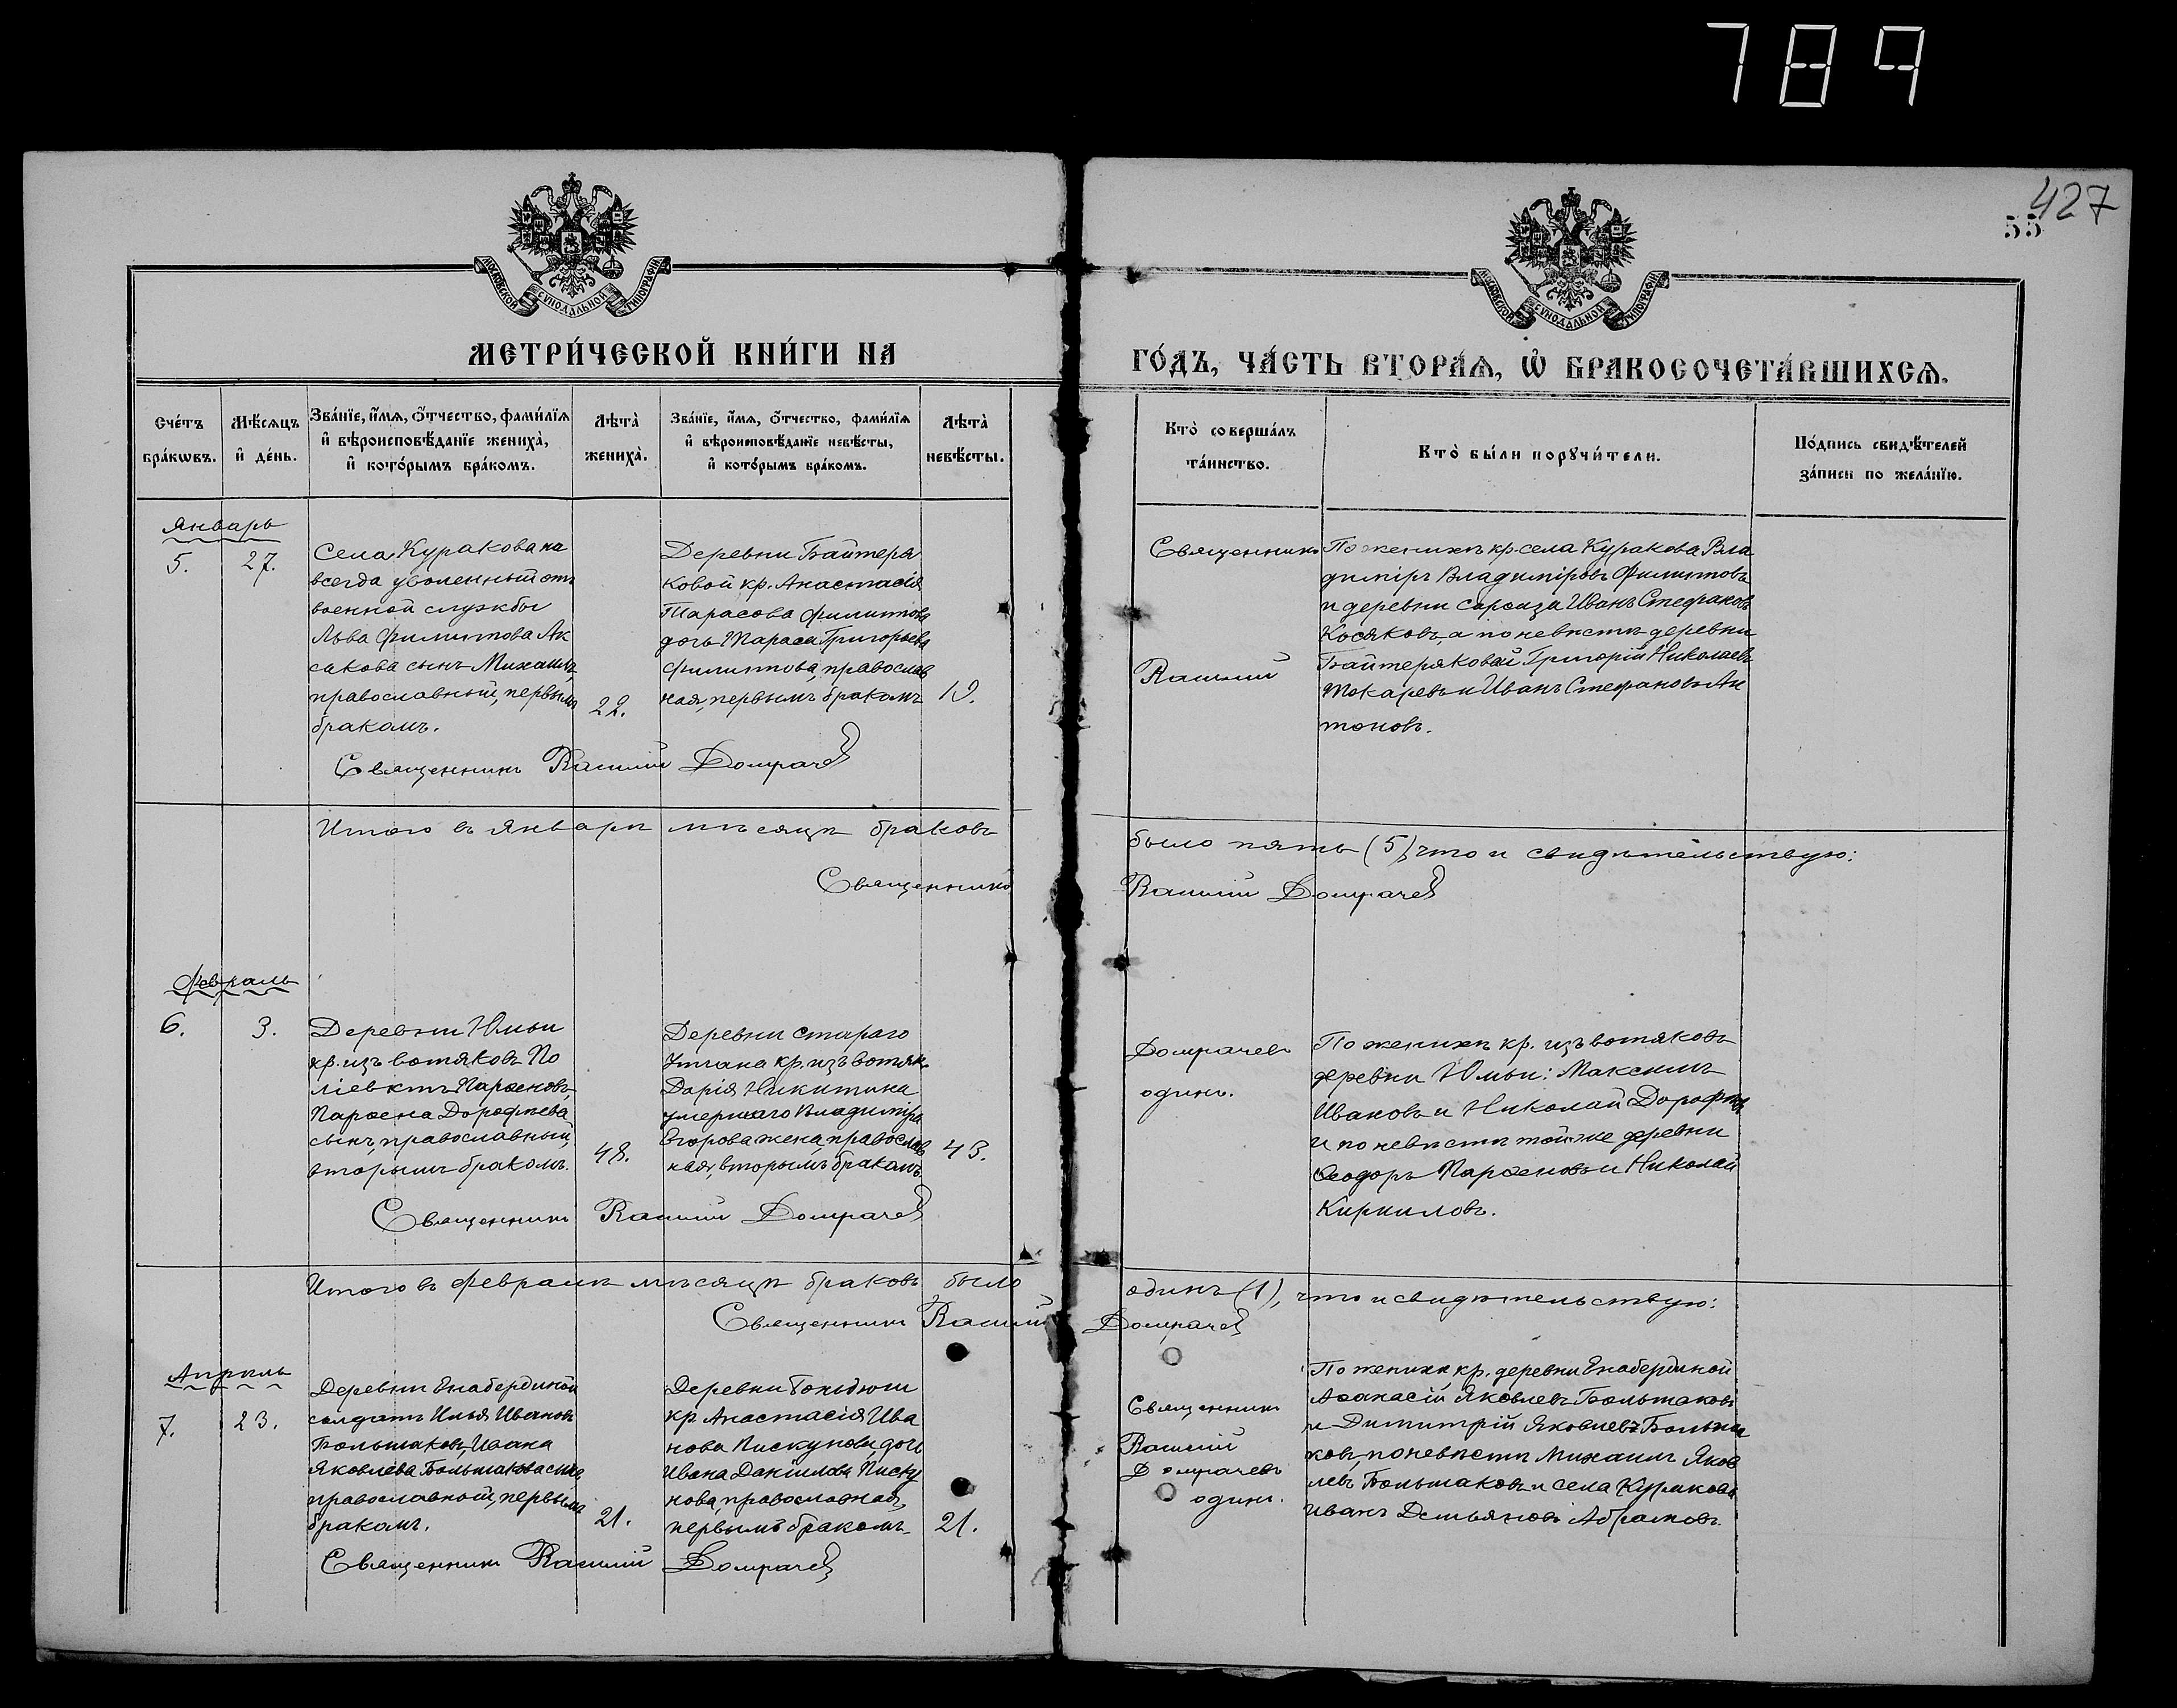 789
427
55
МОСКОВСКОЙ СѴНОДАЛЬНОЙ ТИПОГРАФІИ
МОСКОВСКОЙ СѴНОДАЛЬНОЙ ТИПОГРАФІИ
МЕТРИ́ЧЕСКОЙ КНИ́ГИ НА
ГО́ДЪ, ЧА́СТЬ ВТОРА́Ѧ, Ѡ҆ БРАКОСОЧЕТА́ВШИХСѦ.
Сче́тъ бра́кѡвъ.
Мѣ́сѧцъ и҆ де́нь.
Зва́нїе, и҆́мѧ, ѻ҆́тчество, фами́лїѧ
и҆ вѣроисповѣ́данїе женихა̀,
и҆ кото́рымъ бра́комъ.
Лѣта̀ жениха̀.
Зва́нїе, и҆́мѧ, ѻ҆́тчество, фами́лїѧ
и҆ вѣроисповѣ́данїе невѣ́сты,
и҆ кото́рымъ бра́комъ.
Лѣта̀ невѣ́сты.
Кто̀ соверша́лъ
та́инство.
Кто̀ бы́ли порꙋчи́тели.
По́дпись свидѣ́телей
за́писи по жела́нїю.
Январь
5. 27.
Села Куракова на
всегда уволенный отъ
военной службы
Льва Филиппова Ак
сакова сынъ Михаилъ,
православный, первымъ
бракомъ.
22.
Деревни Байтеря
ковой кр. Анастасія
Тарасова Филиппова
дочь Тараса Григорьева
Филиппова, православ
ная, первымъ бракомъ
19.
Священникъ Василій Домрачевъ
Священникъ
Василій
По женихѣ кр. села Куракова Вла
диміръ Владиміровъ Филипповъ
и деревни Иванъ Стефановъ
Косяковъ, а по невѣстѣ деревни
Байтеряковой Григорій Николаевъ
Токаревъ и Иванъ Стефановъ Ан
тоновъ.
Итого въ январѣ мѣсяцѣ браковъ
было пять (5), что и свидѣтельствую:
Священникъ
Василій Домрачевъ
Февраль
6. 3.
Деревни Юмьи
кр. изъ вотяковъ По
ліевктъ Парѳеновъ,
Парѳена Дорофѣева
сынъ, православный,
вторымъ бракомъ.
48.
Деревни стараго
кр. изъ вотяк.
Дарія Никитина
умершаго Владиміра
Егорова жена, православ
ная, вторымъ бракомъ.
43.
Священникъ Василій Домрачевъ
Домрачевъ
одинъ.
По женихѣ кр. изъ вотяковъ
деревни Юмьи: Максимъ
Ивановъ и Николай Дорофѣевъ
и по невѣстѣ той же деревни
Ѳеодоръ Парѳеновъ и Николай
Кирилловъ.
Итого въ февралѣ мѣсяцѣ браковъ было
одинъ (1), что и свидѣтельствую:
Священникъ Василій
Домрачевъ
Апрѣль
7. 23.
Деревни Енабердиной
солдатъ Илья Ивановъ
Большаковъ, Ивана
Яковлева Большакова сынъ
православный, первымъ
бракомъ.
21.
Деревни
кр. Анастасія Ива
нова Пискунова, дочь
Ивана Даніилова Писку
нова, православная,
первымъ бракомъ.
21.
Священникъ Василій Домрачевъ
Священникъ
Василій
Домрачевъ
одинъ.
По женихѣ кр. деревни Енабердиной
Аѳанасій Яковлевъ Большаковъ
и Димитрій Яковлевъ Больша
ковъ, по невѣстѣ Михаилъ Яков
левъ Большаковъ и села Куракова
Иванъ Демьяновъ Абрамовъ.